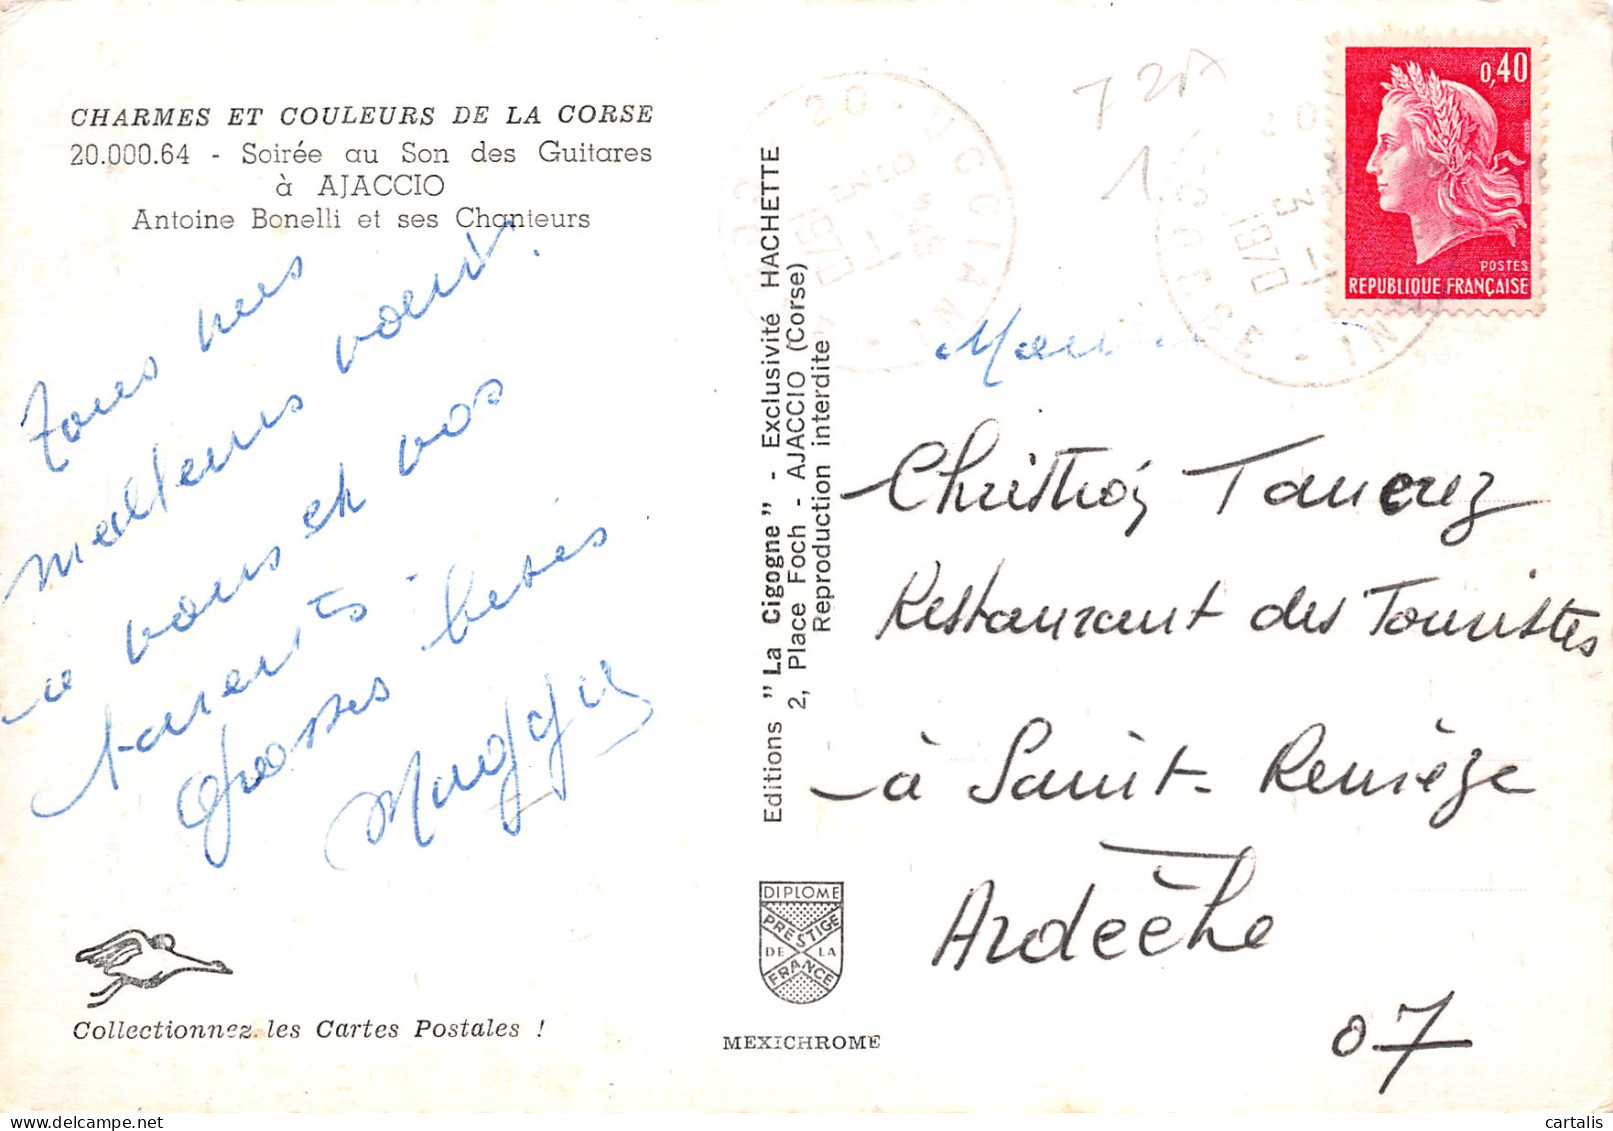 CHARMES ET COULEURS DE LA CORSE
20.000.64 - Soirée au Son des Guitares
à AJACCIO
Antoine Bonelli et ses Chanteurs
Tous nos
meilleurs voeux
à vous et vos
parents.
Grosses bises
Collectionnez les Cartes Postales !
Editions "La Cigogne" - Exclusivité HACHETTE
2, Place Foch - AJACCIO (Corse)
Reproduction interdite
DIPLOME
PRESTIGE
DE LA
FRANCE
MEXICHROME
20 UCCIANI
CORSE
1970
0,40
POSTES
REPUBLIQUE FRANÇAISE
Tancrez
Restaurant des Touristes
à Saint-Remèze
Ardèche
07
cartalis